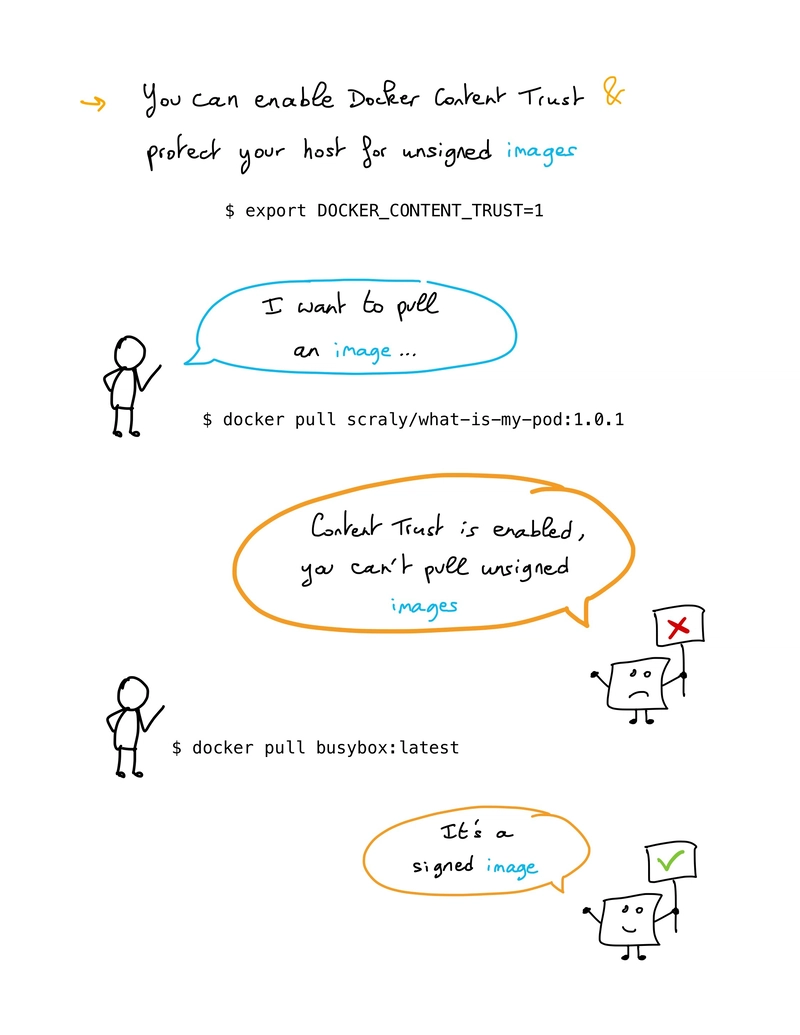 → You can enable Docker Content Trust &
protect your host for unsigned images
$ export DOCKER_CONTENT_TRUST=1
I want to pull
an image...
$ docker pull scraly/what-is-my-pod:1.0.1
Content Trust is enabled,
you can't pull unsigned
images
$ docker pull busybox:latest
It's a
signed image